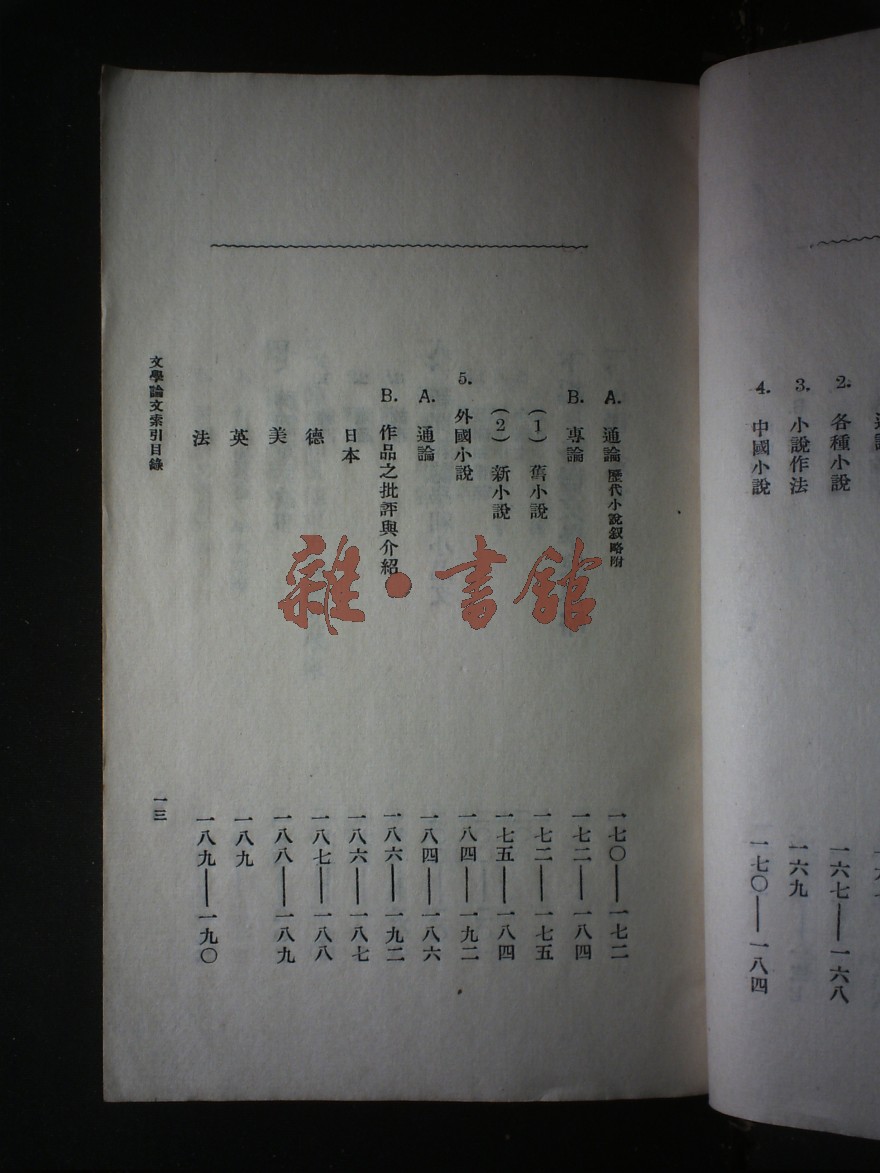 2. 各種小說 一六七——一六八
3. 小說作法 一六九
4. 中國小說 一七〇——一八四
A. 通論 歷代小說叙略附 一七〇——一七二
B. 專論 一七二——一八四
(1) 舊小說 一七二——一七五
(2) 新小說 一七五——一八四
5. 外國小說 一八四——一九二
A. 通論 一八四——一八六
B. 作品之批評與介紹 一八六——一九二
日本 一八六——一八七
德 一八七——一八八
美 一八八——一八九
英 一八九
法 一八九——一九〇
文學論文索引目錄 一三
雜·書館